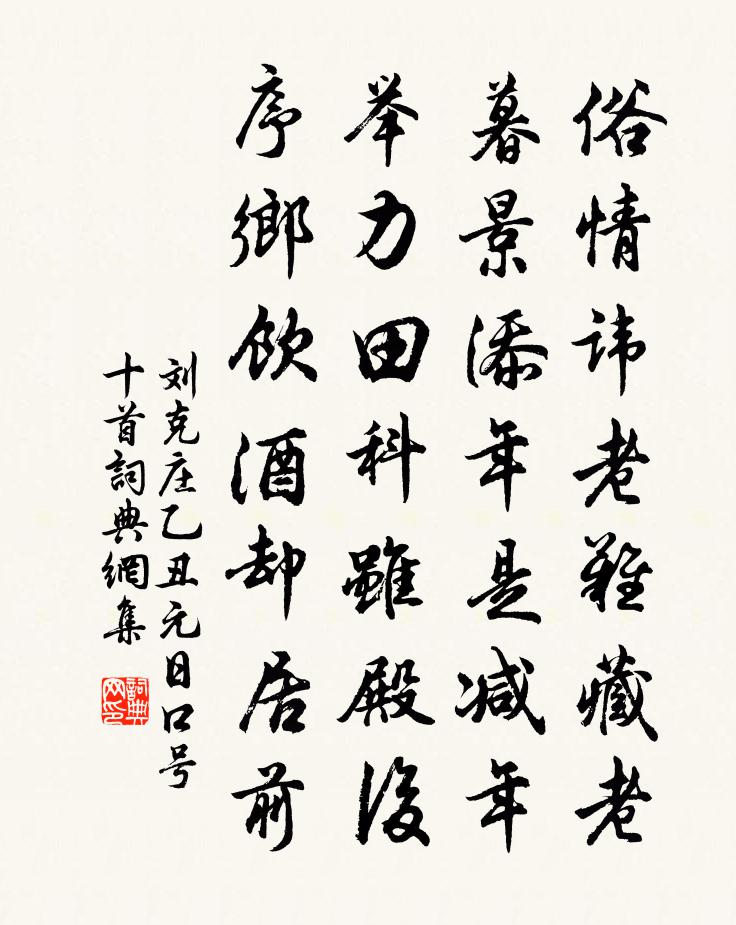 俗情諱老難藏老
暮景添年是减年
举力田科雖殿後
序鄉飲酒却居前
刘克庄乙丑元日口号
十首詞典網集
詞典网印